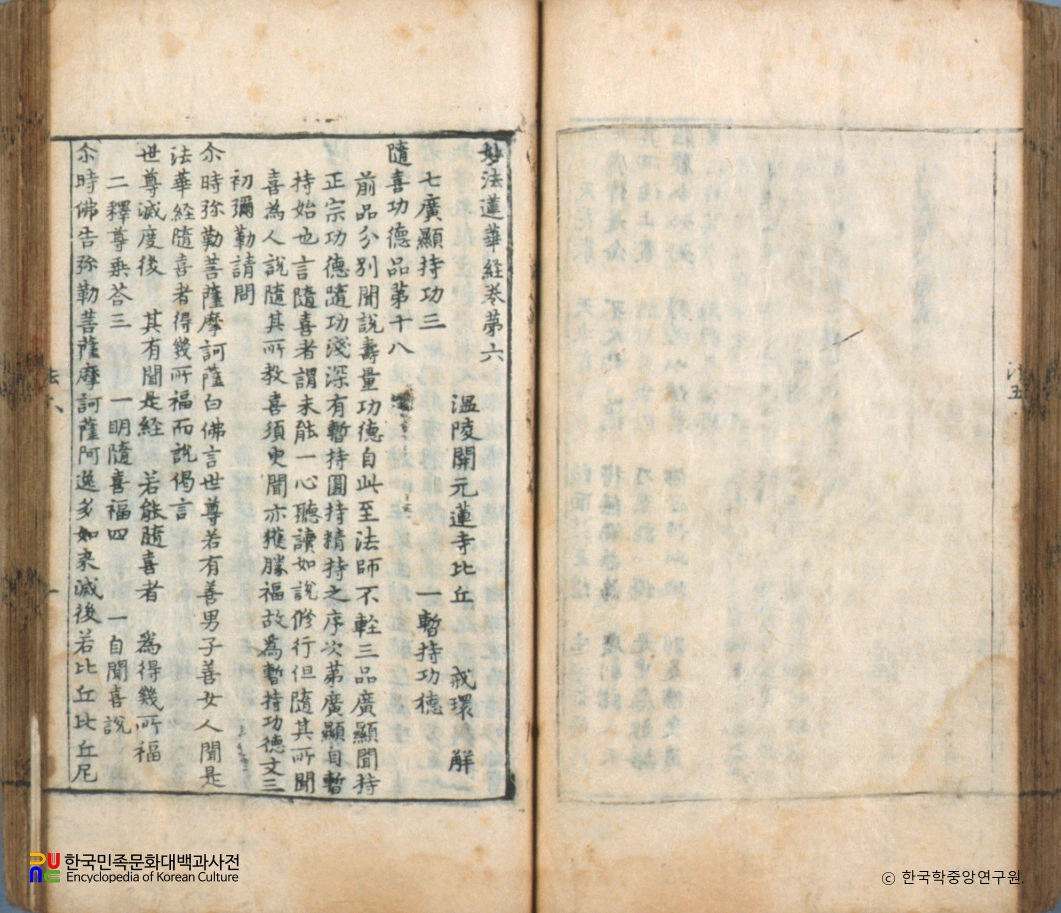 妙法蓮華經卷第六
溫陵開元蓮寺比丘 戒環 解
七廣顯持功三 一暫持功德
隨喜功德品第十八
前品分別聞說壽量功德自此至法師不輕三品廣顯聞持
正宗功德隨功淺深有暫持圓持精持之序次第廣顯自暫
持始也言隨喜者謂未能一心聽讀如說修行但隨其所聞
喜為人說隨其所教喜須更聞亦獲勝福故爲暫持功德文三
初彌勒請問
尒時弥勒菩薩摩訶薩白佛言世尊若有善男子善女人聞是
法華経隨喜者得幾所福而說偈言
世尊滅度後 其有聞是経 若能隨喜者 爲得幾所福
二釋尊乘荅三 一明隨喜福四 一自聞喜說
尒時佛告弥勒菩薩摩訶薩阿逸多如来滅後若比丘比丘尼
法六
一
法五
한국민족문화대백과사전
Encyclopedia of Korean Culture
ⓒ 한국학중앙연구원.